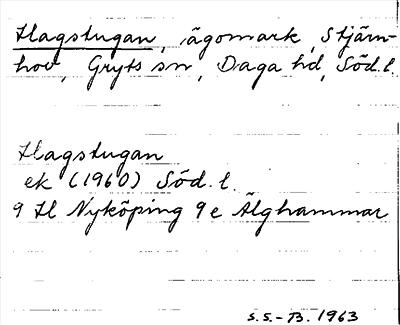 Hagstugan, ägomark, Stjärn-
hov, Gryts sn, Daga hd, Söd.l.
Hagstugan
ek (1960) Söd.l.
9 H Nyköping 9e Älghammar
S.S.-B. 1963